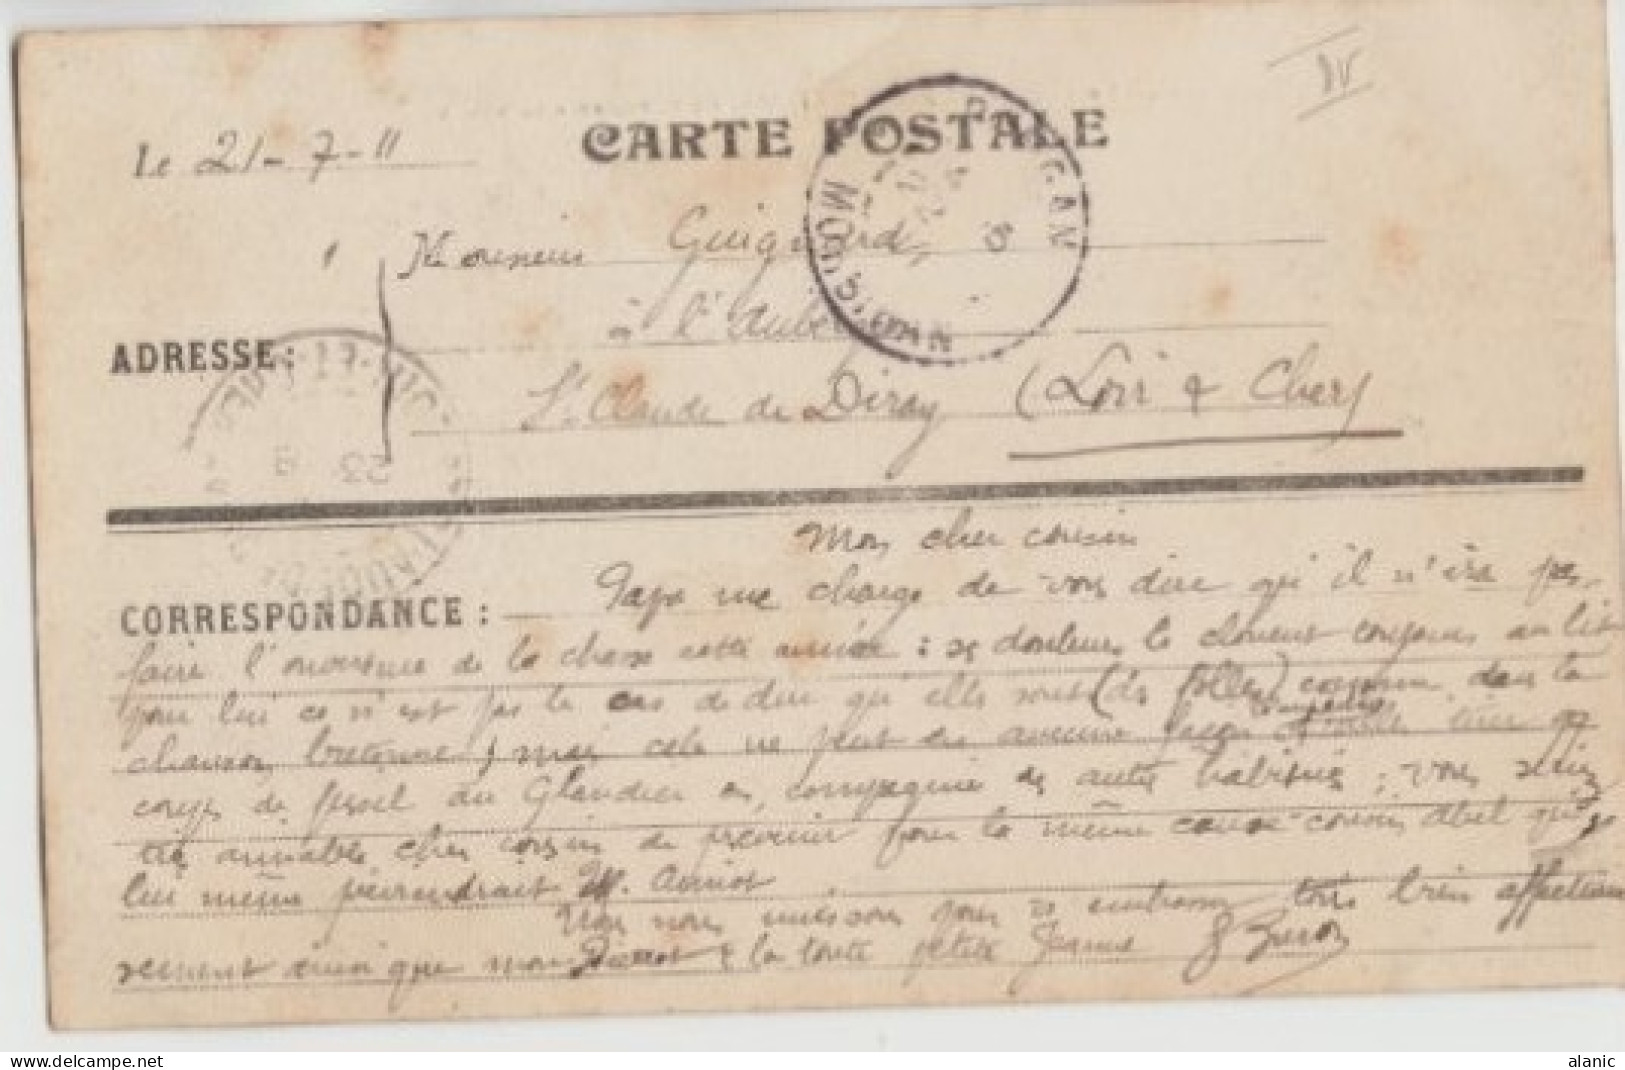 Le 21-7-11
CARTE POSTALE
MORBIHAN
Monsieur Guignard,
à l'Aube
ADRESSE:
St Claude de Diray (Loir & Cher)
23
Mon cher cousin
CORRESPONDANCE: Papa me charge de vous dire qu'il n'ira pas
faire l'ouverture de la chasse cette année : ses douleurs le clouent toujours au lit
pour lui ce n'est pas le cas de dire qu'elles sont (des folles) comme dans la
chanson bretonne, mais cela ne peut en aucune façon
coups de fusil au Glandier en compagnie des autres habitués ; vous seriez
très aimable cher cousin de prévenir pour la même cause cousin Abel qui
lui même préviendrait M. Amiot
Nous nous unissons pour vs embrasser tous bien affectueu
sement ainsi que mon Pierrot & la toute petite Jeanne
alanic
www.delcampe.net